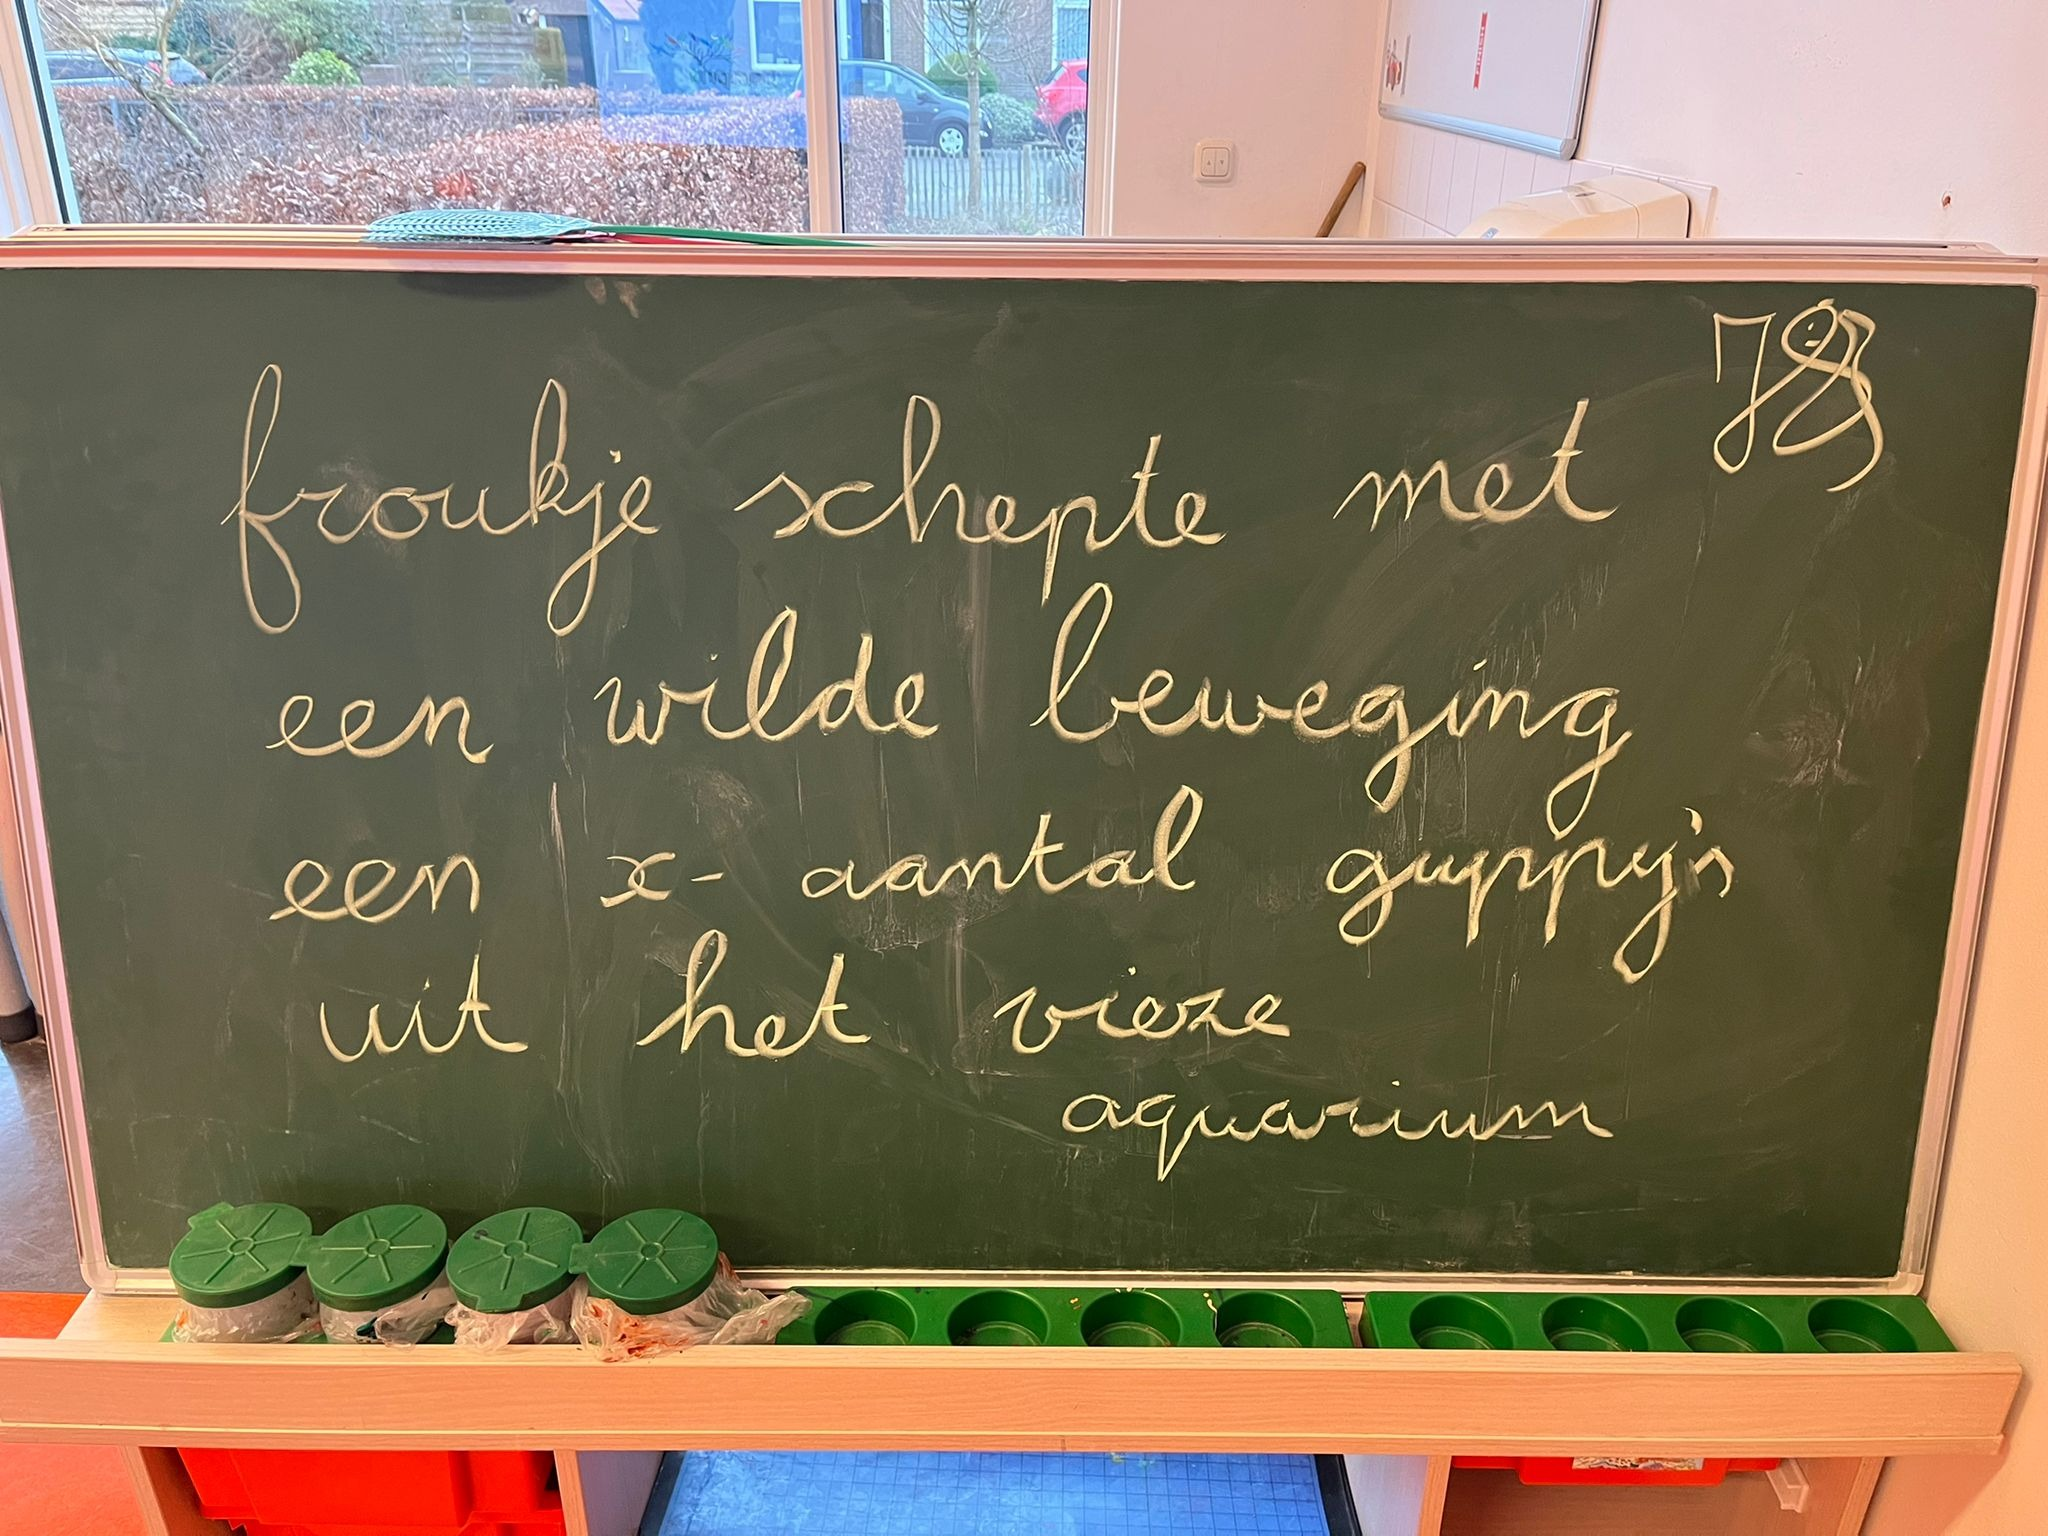 froukje schepte met
een wilde beweging
een x- aantal guppy's
uit het vieze
aquarium